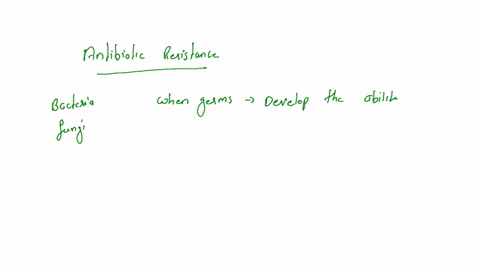 Antibiotic Resistance
Bacteria when germs → Develop the abilit
fungi